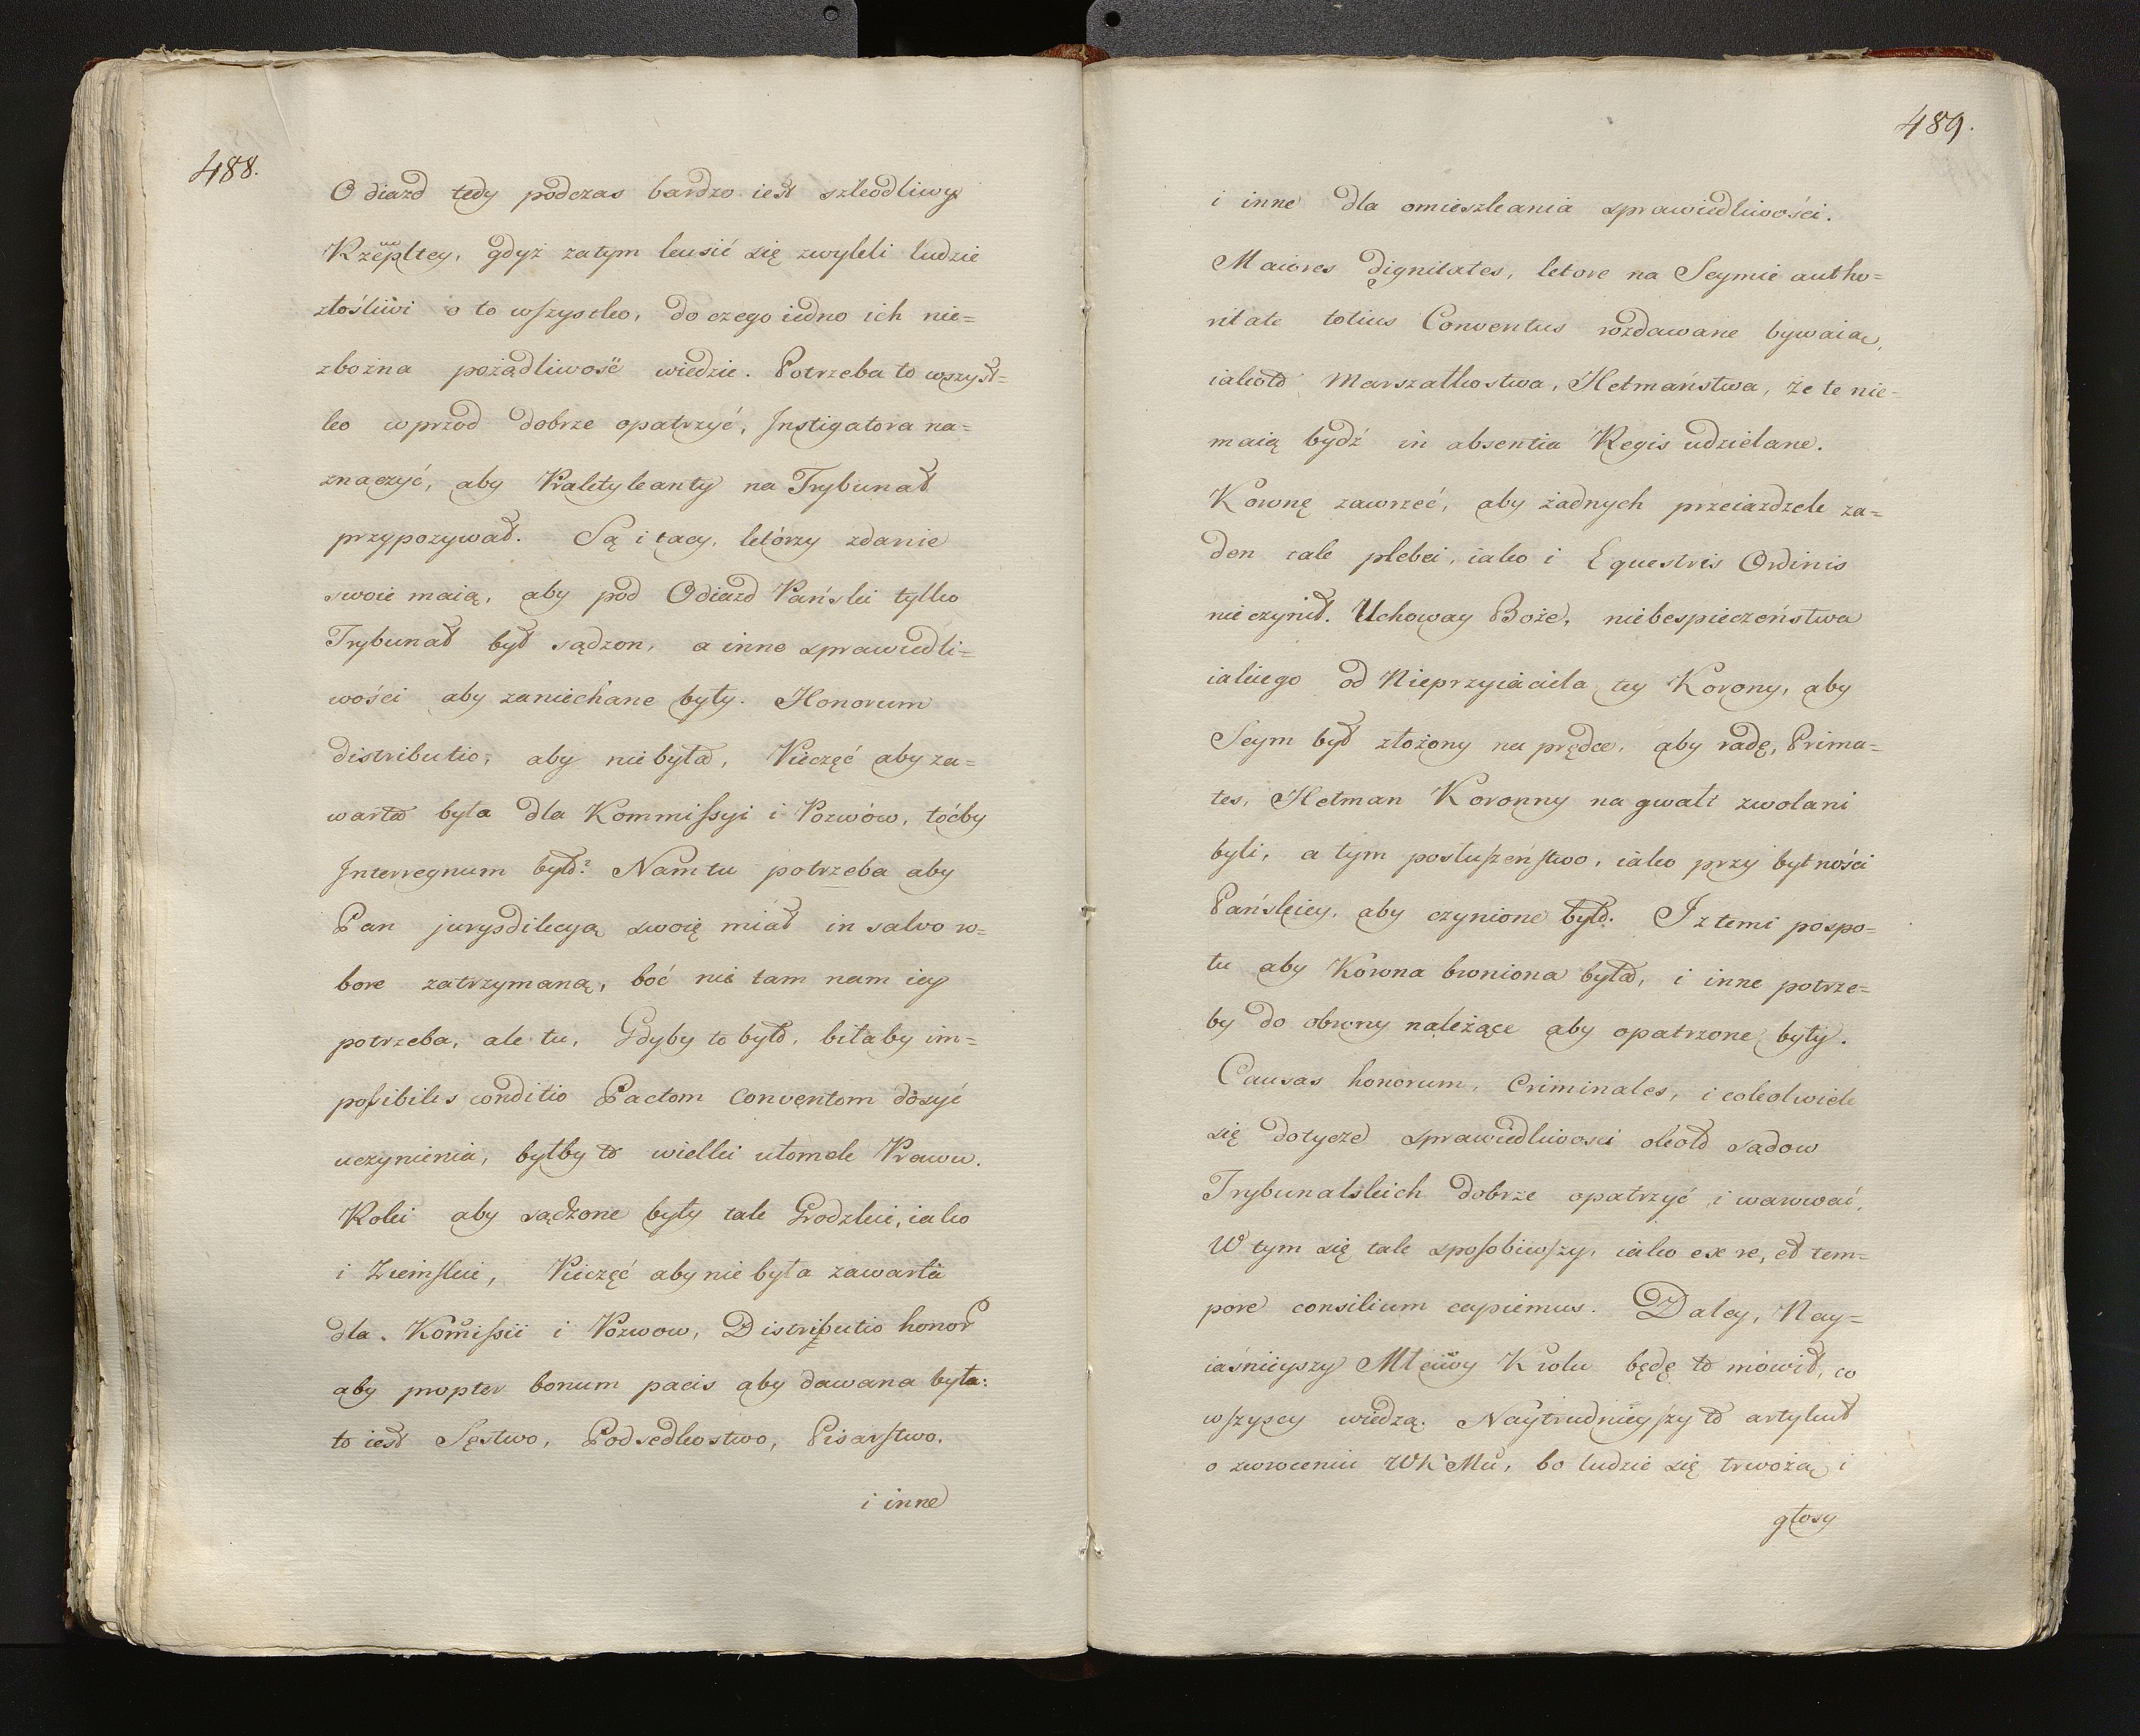 488.
Odiazd tedy podczas bardzo iest szkodliwy
Rzepltey, gdyż zatym kusić się zwykli ludzie
złośliwi o to wszystko, do czego iedno ich nie=
zbożna pożądliwość wiedzie. Potrzeba to wszyst=
ko wprzod dobrze opatrzyć, Instigatora na=
znaczyć, aby Praktykanty na Trybunał
przypozywał. Są i tacy, którzy zdanie
swoie maią, aby pod Odiazd Pański tylko
Trybunał był sądzon, a inne sprawiedli=
wości aby zaniechane były. Honorum
distributio, aby niebyła, Pieczęć aby za=
warta była dla Kommissyi i Pozwów, toćby
Interregnum było? Nam tu potrzeba aby
Pan jurysdikcyą swoię miał in salvo ro=
bore zatrzymaną, boć nie tam nam iey
potrzeba, ale tu, Gdyby to było, biłaby im=
possibilis conditio Pactom Conventom dosyć
uczynienia, byłby to wielki ułomek Prawu.
Roki aby sądzone były tak Grodzkie, iako
i Ziemskie, Pieczęć aby nie była zawarta
dla Komissii i Pozwow, Distributio honor
aby propter bonum pacis aby dawana była:
to iest Sęstwo, Podsedkostwo, Pisarstwo.
i inne
489.
i inne dla omieszkania sprawiedliwości.
Maiores dignitates, ktore na Seymie autho=
ritate totius Conventus rozdawane bywaią,
iakoto Marszałkostwa, Hetmaństwa, że te nie=
maią bydź in absentia Regis udzielane.
Koronę zawrzeć, aby żadnych przeiazdzek ża=
den tak plebei, iako i Equestris Ordinis
nie czynił. Uchoway Boże, niebespieczeństwa
iakiego od Nieprzyiaciela tey Korony, aby
Seym był złożony na prędce, aby radę, Prima=
tes, Hetman Koronny na gwałt zwołani
byli, a tym posłuszeństwo, iako przy bytności
Pańskiey, aby czynione było. I z temi pospo=
łu aby Korona broniona była, i inne potrze=
by do obrony należące aby opatrzone były.
Causas honorum, Criminales, i cokolwiek
się dotycze sprawiedliwosci około sądow
Trybunalskich dobrze opatrzyć i warować,
W tym się tak sposobiwszy, iako ex re, et tem=
pore consilium capiemus. Daley, Nay=
iaśnieyszy Młciwy Krolu będę to mówił, co
wszyscy wiedzą. Naytrudnieyszy to artykuł
o zwroceniu WKMu, bo ludzie się trwożą i
głosy